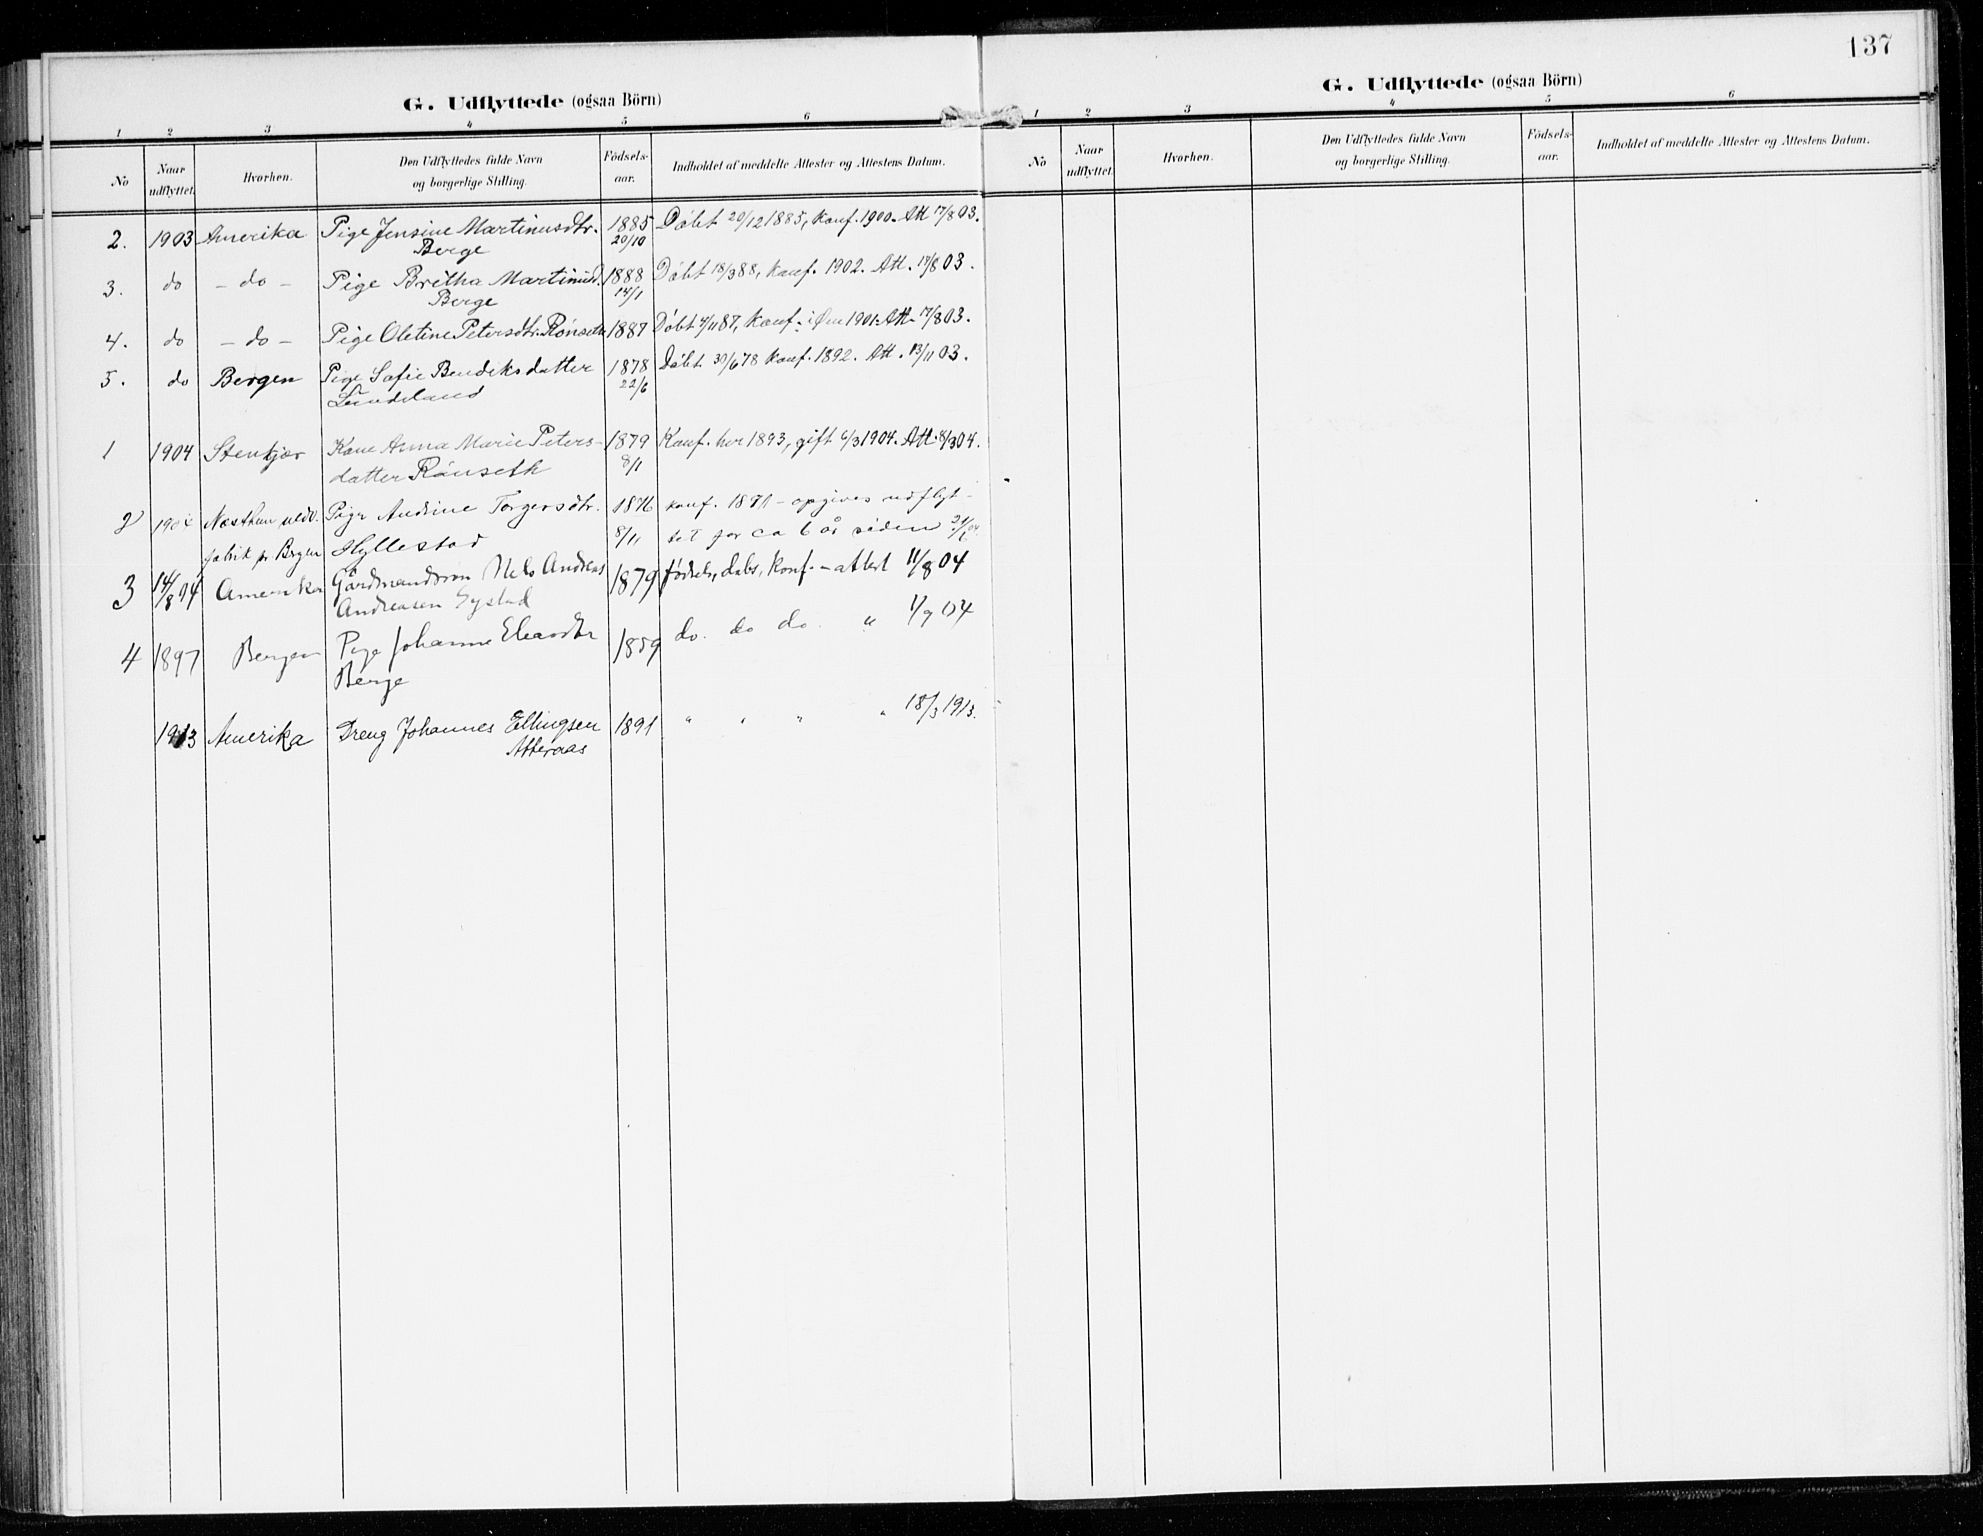 137
G. Udflyttede (ogsaa Börn)
1 2 3 4 5 6
No Naar udflyttet. Hvorhen. Den Udflyttedes fulde Navn og borgerlige Stilling. Födsels-aar. Indholdet af meddelte Attester og Attestens Datum.
2. 1903 Amerika Pige Jensine Martinusdtr. 1885 Döbt 20/12 1885, Konf. 1900. Att 17/8 03.
Berge 20/10
3. do - do - Pige Britha Martinusd. 1888 Döbt 18/3 88, Konf. 1902. Att. 17/8 03.
Berge 14/1
4. do - do - Pige Oletine Petersdtr. Rönseth 1887 Döbt 4/11 87, Konf. i 1901. Att. 17/8 03.
5. do Bergen Pige Sofie Bendiksdatter 1878 Döbt 30/6 78 Konf. 1892. Att. 13/11 03.
Lundeland 22/6
1 1904 Stenkjær Kone Anna Marie Peters- 1879 Konf. her 1893, gift 6/3 1904. Att. 8/3 04.
datter Rönseth 8/1
2 Pige Andrine Torgersdtr. 1876 konf. 1891 - opgives udflyt-
fabrik pr Bergen Hyllestad 8/11 tet for ca 6 år siden
3 14/8 04 Amerika Gårdmandssøn Nels Andreas 1879 fødsels, dabs, Konf. - attest 11/8 04
Andreasen Systad
4 1897 Bergen Pige Johanne 1859 do. do do. " 1/9 04
Berge
1913 Amerika Dreng Johannes Ellingsen 1891 " " " " 18/3 1913.
Atteraas
G. Udflyttede (ogsaa Börn)
1 2 3 4 5 6
No Naar udflyttet. Hvorhen. Den Udflyttedes fulde Navn og borgerlige Stilling. Födsels-aar. Indholdet af meddelte Attester og Attestens Datum.